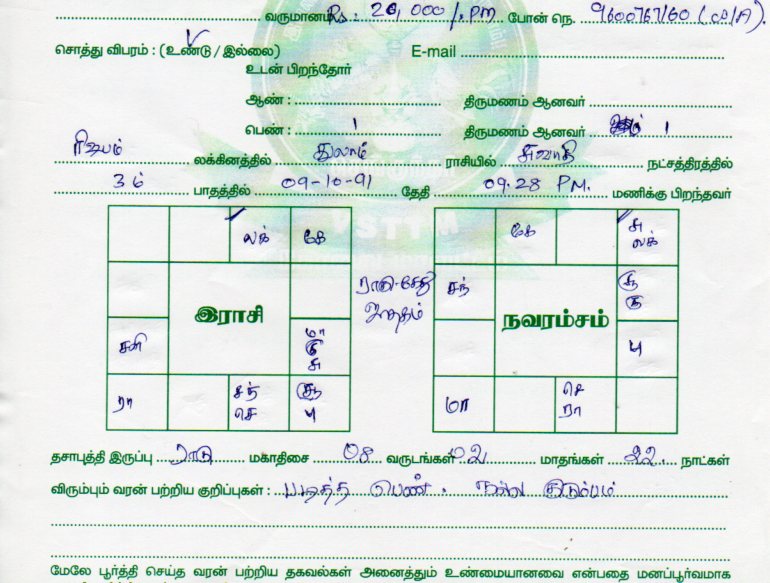 வருமானம் Rs: 20,000/. PM போன் நெ. 9600767160
சொத்து விபரம் : (உண்டு / இல்லை) E-mail
உடன் பிறந்தோர்
ஆண் : திருமணம் ஆனவர்
பெண் : 1 திருமணம் ஆனவர் 1
ரிஷபம் லக்கினத்தில் துலாம் ராசியில் சுவாதி நட்சத்திரத்தில்
3ம் பாதத்தில் 09-10-91 தேதி 09.28 PM. மணிக்கு பிறந்தவர்
VSTTM
லக் கே
இராசி
சனி
மா
கு
சு
ரா
சந்
செ
சூ
பு
ராகு-கேது
ஜாதகம்
கே
சு
லக்
சந்
சூ
கு
நவரம்சம்
பு
மா
செ
ரா
தசாபுத்தி இருப்பு ராகு மகாதிசை 08 வருடங்கள் 02 மாதங்கள் 22 நாட்கள்
விரும்பும் வரன் பற்றிய குறிப்புகள் : படித்த பெண். நல்ல குடும்பம்
மேலே பூர்த்தி செய்த வரன் பற்றிய தகவல்கள் அனைத்தும் உண்மையானவை என்பதை மனப்பூர்வமாக